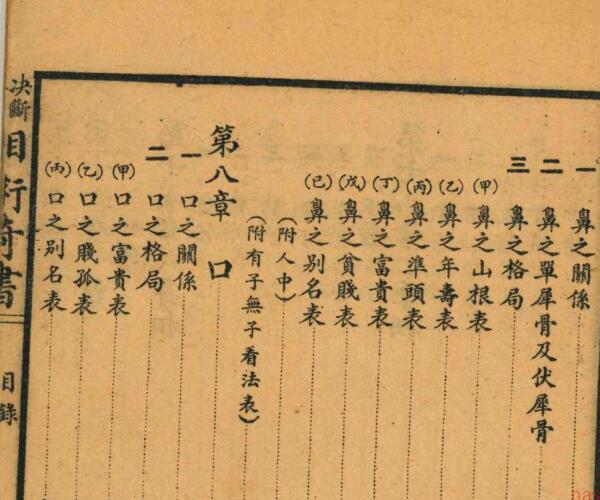 一 鼻之關係
二 鼻之單犀骨及伏犀骨
三 鼻之格局
(甲) 鼻之山根表
(乙) 鼻之年壽表
(丙) 鼻之準頭表
(丁) 鼻之富貴表
(戊) 鼻之貧賤表
(己) 鼻之別名表
(附人中)
(附有子無子看法表)
第八章 口
一 口之關係
二 口之格局
(甲) 口之富貴表
(乙) 口之賤孤表
(丙) 口之别名表
决斷 相術奇書
目錄